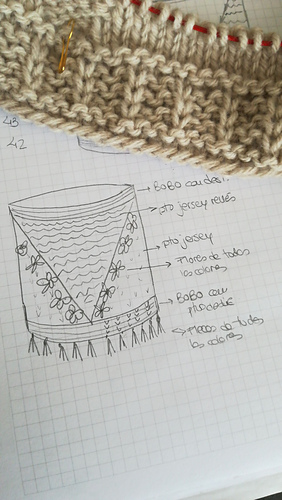 43
42
BOBO con des..
pto jersey revés
pto jersey
Flores de todos
los colores
BOBO con
picados
Flecos de todos
los colores